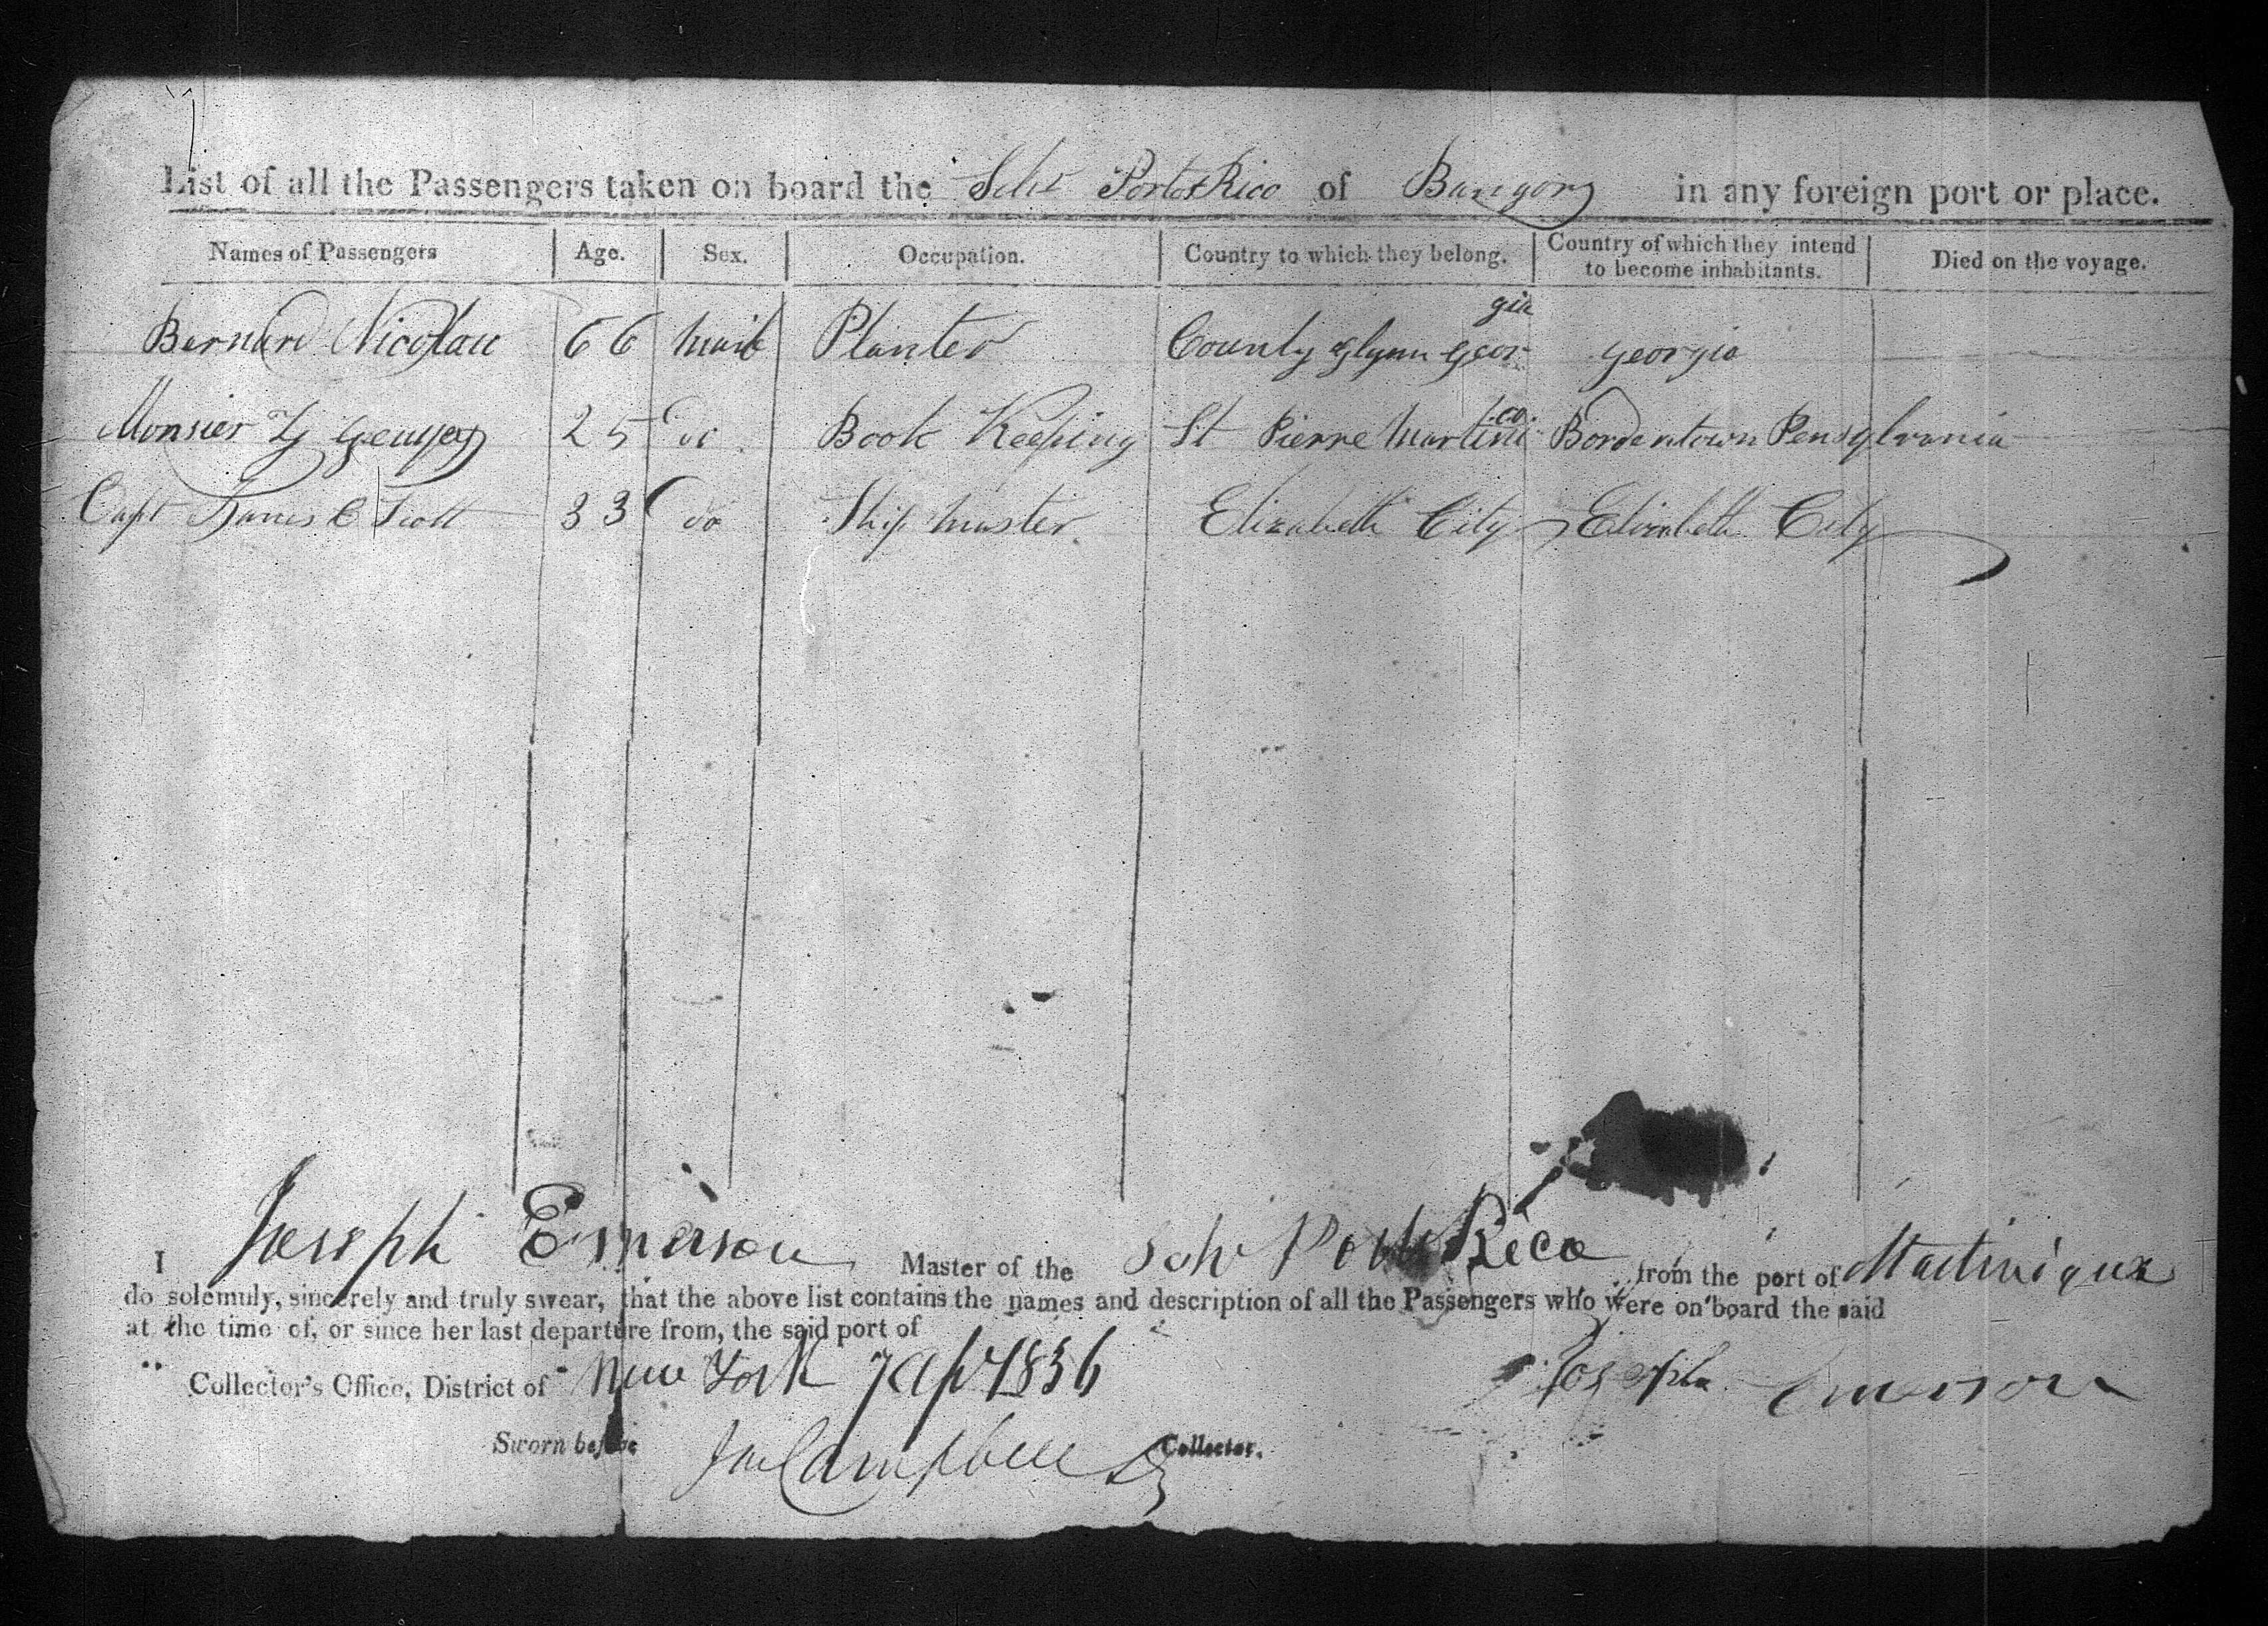 List of all the Passengers taken on board the Schr Porto Rico of Bangor in any foreign port or place.
Names of Passengers Age. Sex. Occupation. Country to which they belong. Country of which they intend to become inhabitants. Died on the voyage.
Bernard Nicolau 66 male Planter County Glynn Georgia Georgia
Monsier 25 do Book Keeping St Pierre Martinico Bordentown Pensylvania
Capt James C Scott 33 do Ship Master Elizabeth City Elizabeth City
I Joseph Emerson Master of the Schr Porto Rico from the port of Martinique
do solemnly, sincerely and truly swear, that the above list contains the names and description of all the Passengers who were on board the said
at the time of, or since her last departure from, the said port of
Collector's Office, District of New York 7 Apl 1836 Joseph Emerson
Sworn before Campbell Collector.